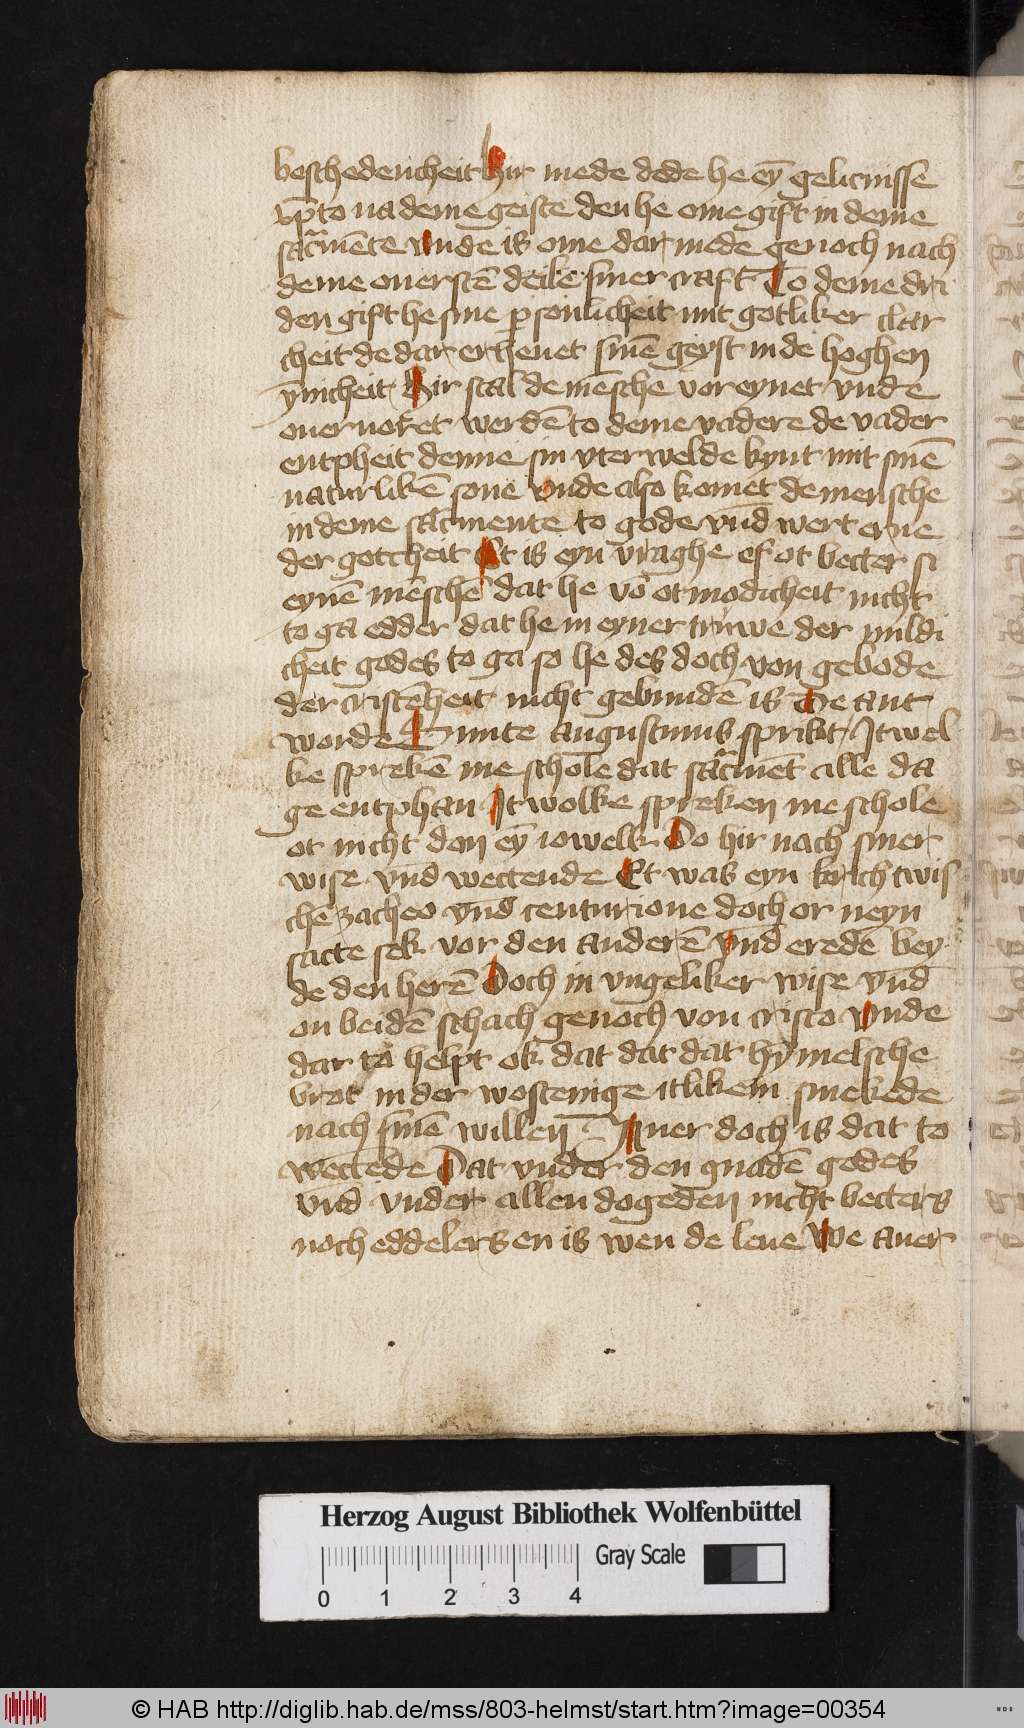 bescheidenicheit Hir mede dede he eȳ gelicnisse
xp̄to na deme geiste den he ome gift in deme
sac̄mēte Unde is ome dar mede genoch nach
deme ouerstē deile siner craft To deme dri
den gift he sine p̱sonlicheit mit gotliker clar
cheit de dar erheuet sinē geyst in de hoghen
ynicheit Hir scal de mēsche vor eynet vnde
ouer uoret werdē to deme vadere de vader
entpheit denne sin vterwelde kynt mit sinē
naturlikē sone Unde also komet de mensche
in deme sac̄mente to gode vn̄d wert erue
der gotcheit Et is eyn vraghe ef ot better si
eynē mēschē dat he vō otmodicheit nicht
to ga edder dat he in eyner truwe der mildi
cheit godes to ga so he des doch von gebode
der cristēheit nicht gebundē is De ant
worde Sunte augustinus sprikt Itwel
ke sprekē me schole dat sac̄mēt alle da
ge entphan Itwolke spreken me schole
ot nicht don eȳ iowelk Do hir nach siner
wise vn̄d wettende Et was eyn krich twis
chē zacheo vn̄d centurione doch or neyn
satte sek vor den anderē Vn̄d eredē bey
de den herē Doch in vngeliker wise vn̄d
on beidē schach genoch von cristo Unde
dar to helpt ok dat dat dat hymelsche
brot in der wostenige itlikem smekede
nach sinē willen Auer doch is dat to
wettēde Dat vnder den gnadē godes
vnd vnder allen dogeden nicht betters
noch eddelers en is wen de leue We auer
Herzog August Bibliothek Wolfenbüttel
Gray Scale
0 1 2 3 4
© HAB http://diglib.hab.de/mss/803-helmst/start.htm?image=00354